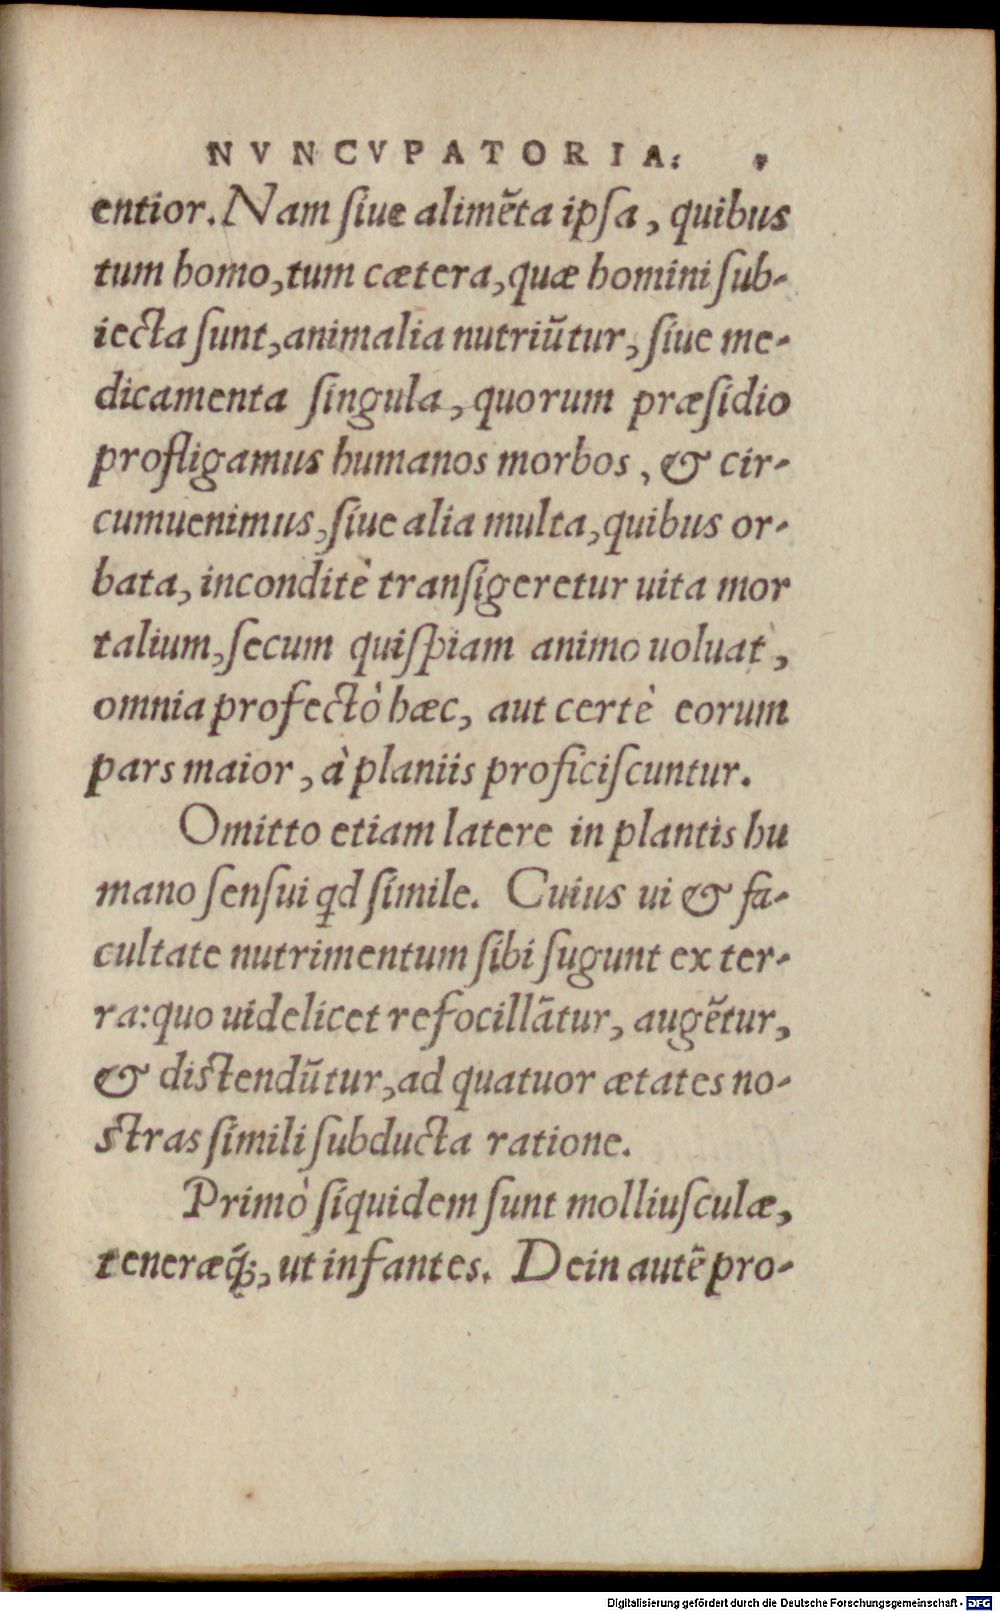 NVNCVPATORIA:
entior. Nam siue alimẽta ipsa, quibus
tum homo, tum cætera, quæ homini sub-
iecta sunt, animalia nutriũtur, siue me-
dicamenta singula, quorum præsidio
profligamus humanos morbos, & cir-
cumuenimus, siue alia multa, quibus or-
bata, inconditè transigeretur uita mor
talium, secum quispiam animo uoluat,
omnia profectò hæc, aut certè eorum
pars maior, à planiis proficiscuntur.
Omitto etiam latere in plantis hu
mano sensui qd simile. Cuius ui & fa-
cultate nutrimentum sibi sugunt ex ter-
ra: quo uidelicet refocillãtur, augẽtur,
& distendũtur, ad quatuor ætates no-
stras simili subducta ratione.
Primò siquidem sunt molliusculæ,
teneræq́;, ut infantes. Dein autẽ pro-
Digitalisierung gefördert durch die Deutsche Forschungsgemeinschaft - DFG